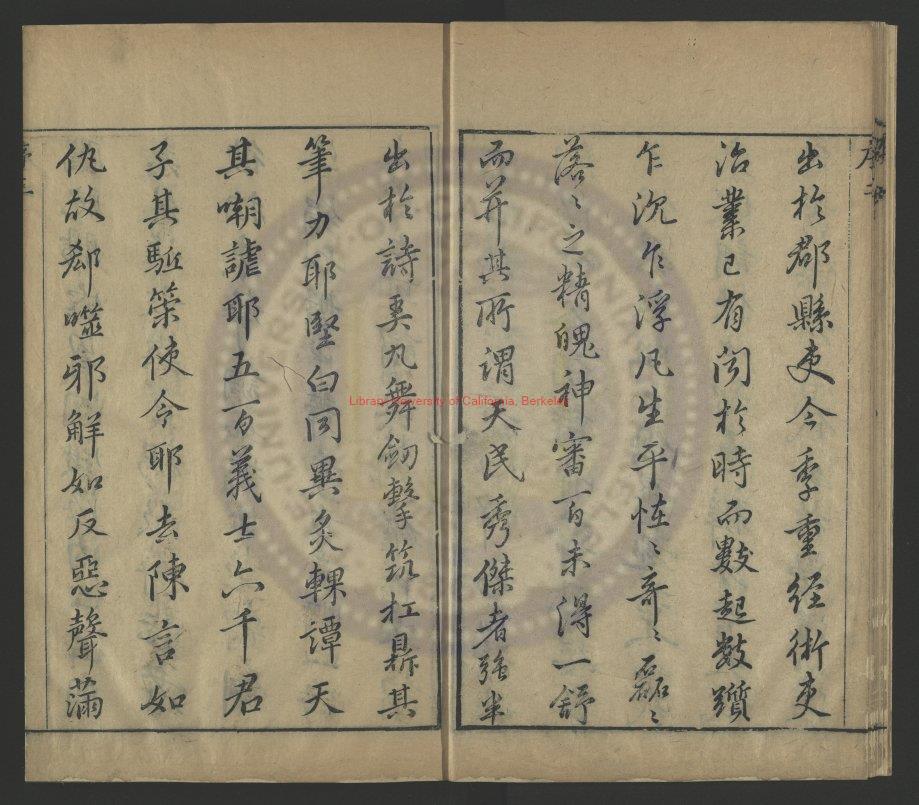 出於郡縣吏今季重経術吏
治業已有闻於時而數起數躓
乍沉乍浮凡生平恠〻奇〻磊〻
落〻之精魄神審百未得一舒
而并其所謂天民秀傑者強半
出於詩奚九舞劒擊筑扛鼎其
筆力耶堅白同異炙輠譚天
其嘲謔耶五百義士六千君
子其駈築使令耶去陳言如
仇故郄噬邪解如反惡聲滿
Library University of California, Berkeley